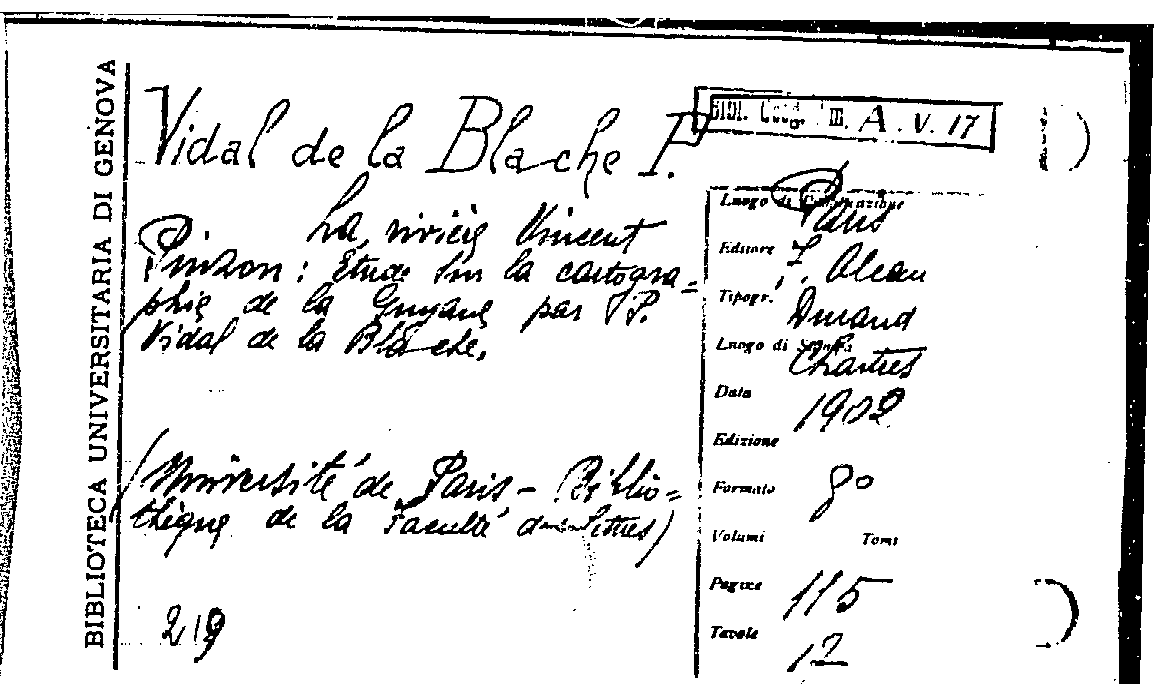 BIBLIOTECA UNIVERSITARIA DI GENOVA
Vidal de la Blache P.
BIBL. III. A. V. 17
La rivière Vincent
Pinzon: Étude sur la cartogra=
phie de la Guyane par P.
Vidal de la Blache.
(Université de Paris - Biblio=
thèque de la Faculté des Lettres)
219
Luogo di Pubblicazione Paris
Editore F. Alcan
Tipogr. Durand
Luogo di Stampa Chartres
Data 1902
Edizione
Formato 8º
Volumi Tomi
Pagine 115
Tavole 12